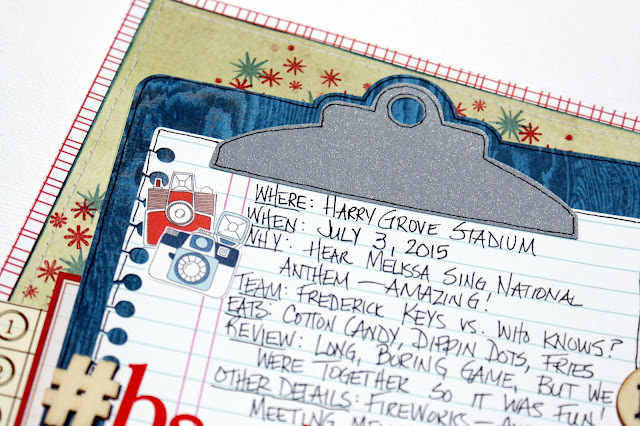 WHERE: HARRY GROVE STADIUM
WHEN: JULY 3, 2015
WHY: HEAR MELISSA SING NATIONAL
ANTHEM — AMAZING!
TEAM: FREDERICK KEYS VS. WHO KNOWS?
EATS: COTTON CANDY, DIPPIN DOTS, FRIES
REVIEW: LONG, BORING GAME, BUT WE
WERE TOGETHER SO IT WAS FUN!
OTHER DETAILS: FIREWORKS —
MEETING
1
2
3
#ba